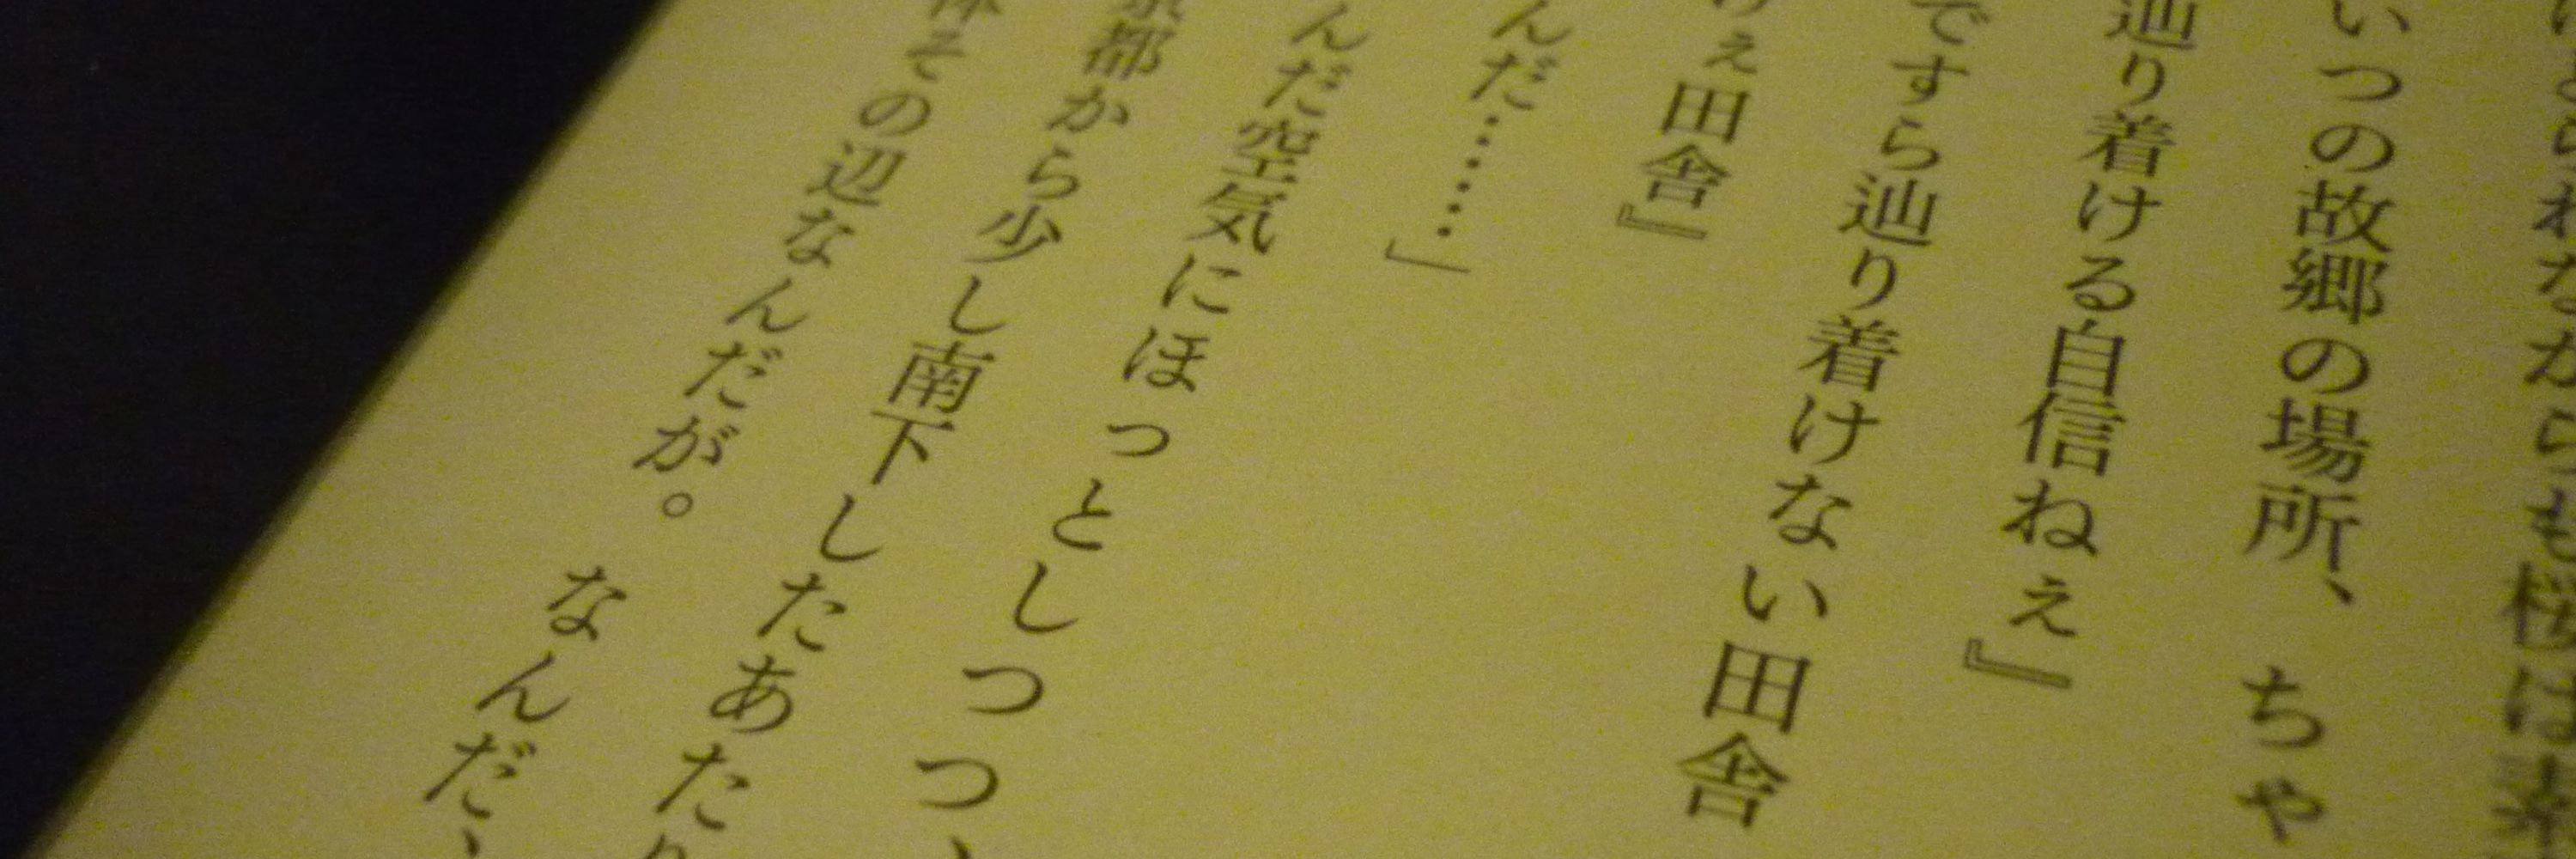 られながらも桜は
いつの故郷の場所、ちゃ
辿り着ける自信ねぇ』
ですら辿り着けない田舎
けぇ田舎』
んだ……」
んだ空気にほっとしつつ、
京都から少し南下したあたり
体その辺なんだが。なんだ、